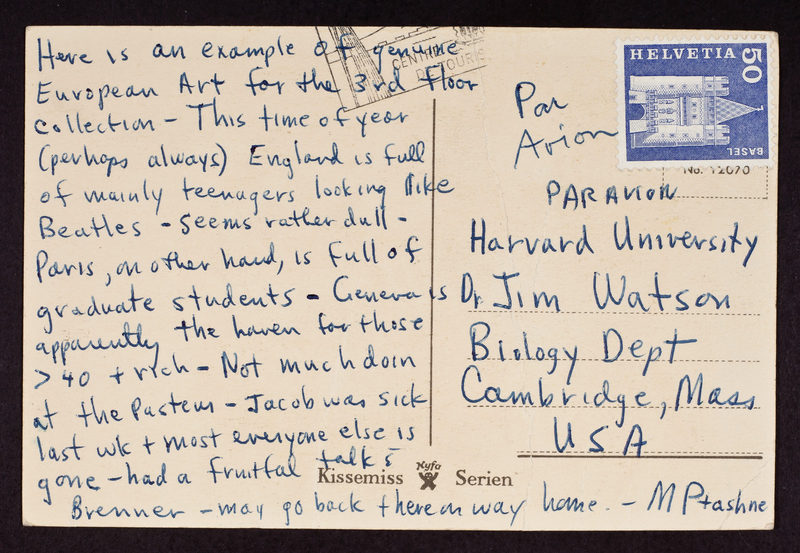 Here is an example of genuine
European Art for the 3rd Floor
collection - This time of year
(perhaps always) England is full
of mainly teenagers looking like
Beatles - Seems rather dull -
Paris, on other hand, is full of
graduate students - Geneva is
apparently the haven for those
> 40 + rich - Not much doin
at the Pasteur - Jacob was sick
last wk + most everyone else is
gone - had a fruitful talk s
Brenner - may go back there on way home. - M Ptashne
CENTRE
DE TOURIS
HELVETIA 50
BASEL
No. 12670
Par
Avion
PAR AVION
Harvard University
Dr Jim Watson
Biology Dept
Cambridge, Mass
USA
Nyfa
Kissemiss Serien